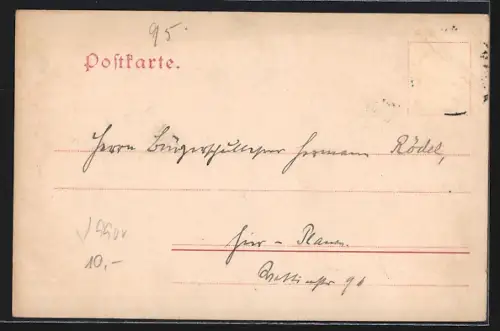 95.
Postkarte.
Herrn Bürgerschullehrer Hermann Rödel,
hier - Plauen.
Wettinstr 96
10,-